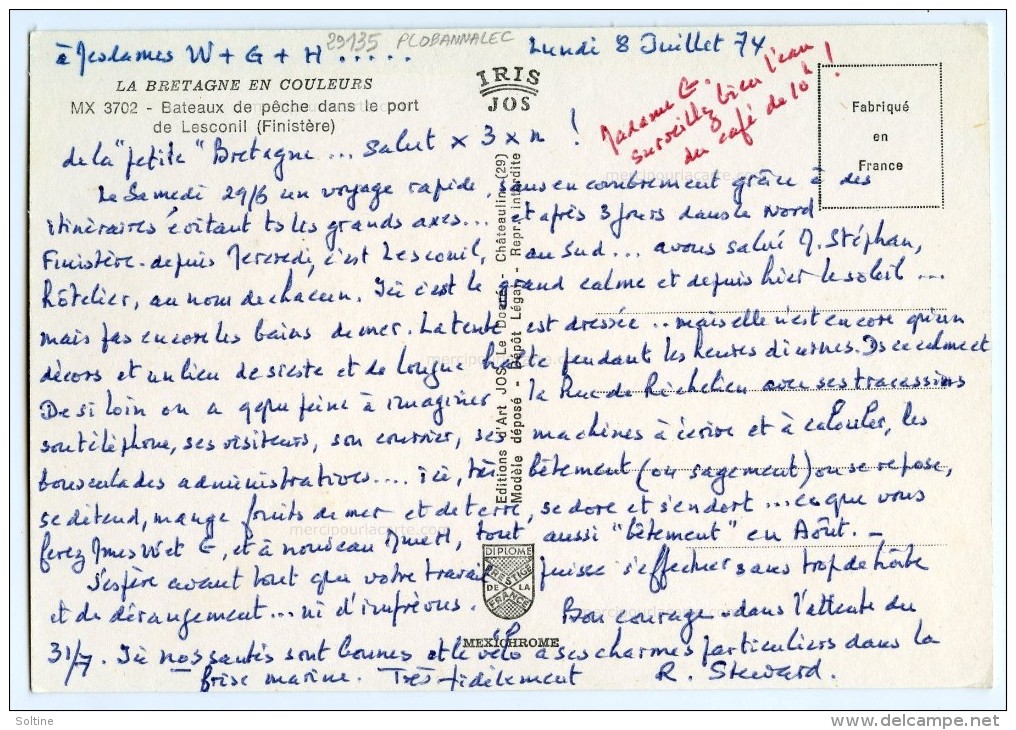 à Mesdames W + G + H ..... 29135 PLOBANNALEC Lundi 8 Juillet 74
LA BRETAGNE EN COULEURS
MX 3702 - Bateaux de pêche dans le port
de Lesconil (Finistère)
IRIS
JOS
Madame G.
surveillez bien l'eau
du café de 10h !
Fabriqué
en
France
de la "petite" Bretagne ... Salut x 3 x n !
Le Samedi 29/6 un voyage rapide, sans encombrement grâce à des
itinéraires évitant ts les grands axes... et après 3 jours dans le Nord
Finistère - depuis Mercredi, c'est Lesconil, au Sud... avons salué M. Stéphan,
hôtelier, au nom de chacun. Ici c'est le grand calme et depuis hier le soleil ...
mais pas encore les bains de mer. La tente est dressée .. mais elle n'est encore qu'un
décors et un lieu de sieste et de longue halte pendant les heures diurnes. Ds ce calme et
De si loin on a qq peine à imaginer la Rue de Richelieu avec ses tracassins
son téléphone, ses visiteurs, son courrier, ses machines à écrire et à calculer, les
bousculades administratives.... ici, très bêtement (ou sagement) on se repose,
se détend, mange fruits de mer et de terre, se dore et s'endort ... ce que vous
ferez Mmes W et G, et à nouveau Mme H, tout aussi "bêtement" en Août. -
J'espère avant tout que votre travail puisse s'effectuer sans trop de hâte
et de dérangement ... ni d'imprévus. Bon courage dans l'attente du
31/7. Ici nos santés sont bonnes et le vélo a ses charmes particuliers dans la
brise marine. Très fidèlement R. Steward.
Editions d'Art JOS Le Doaré - Châteaulin (29)
Modèle déposé - Dépôt Légal - Repr. interdite
DIPLOME
PRESTIGE
DE LA
FRANCE
MEXICHROME
mercipourlacarte.com
mercipourlacarte.com
mercipourlacarte.com
mercipourlacarte.com
mercipourlacarte.com
Soltine
www.delcampe.net